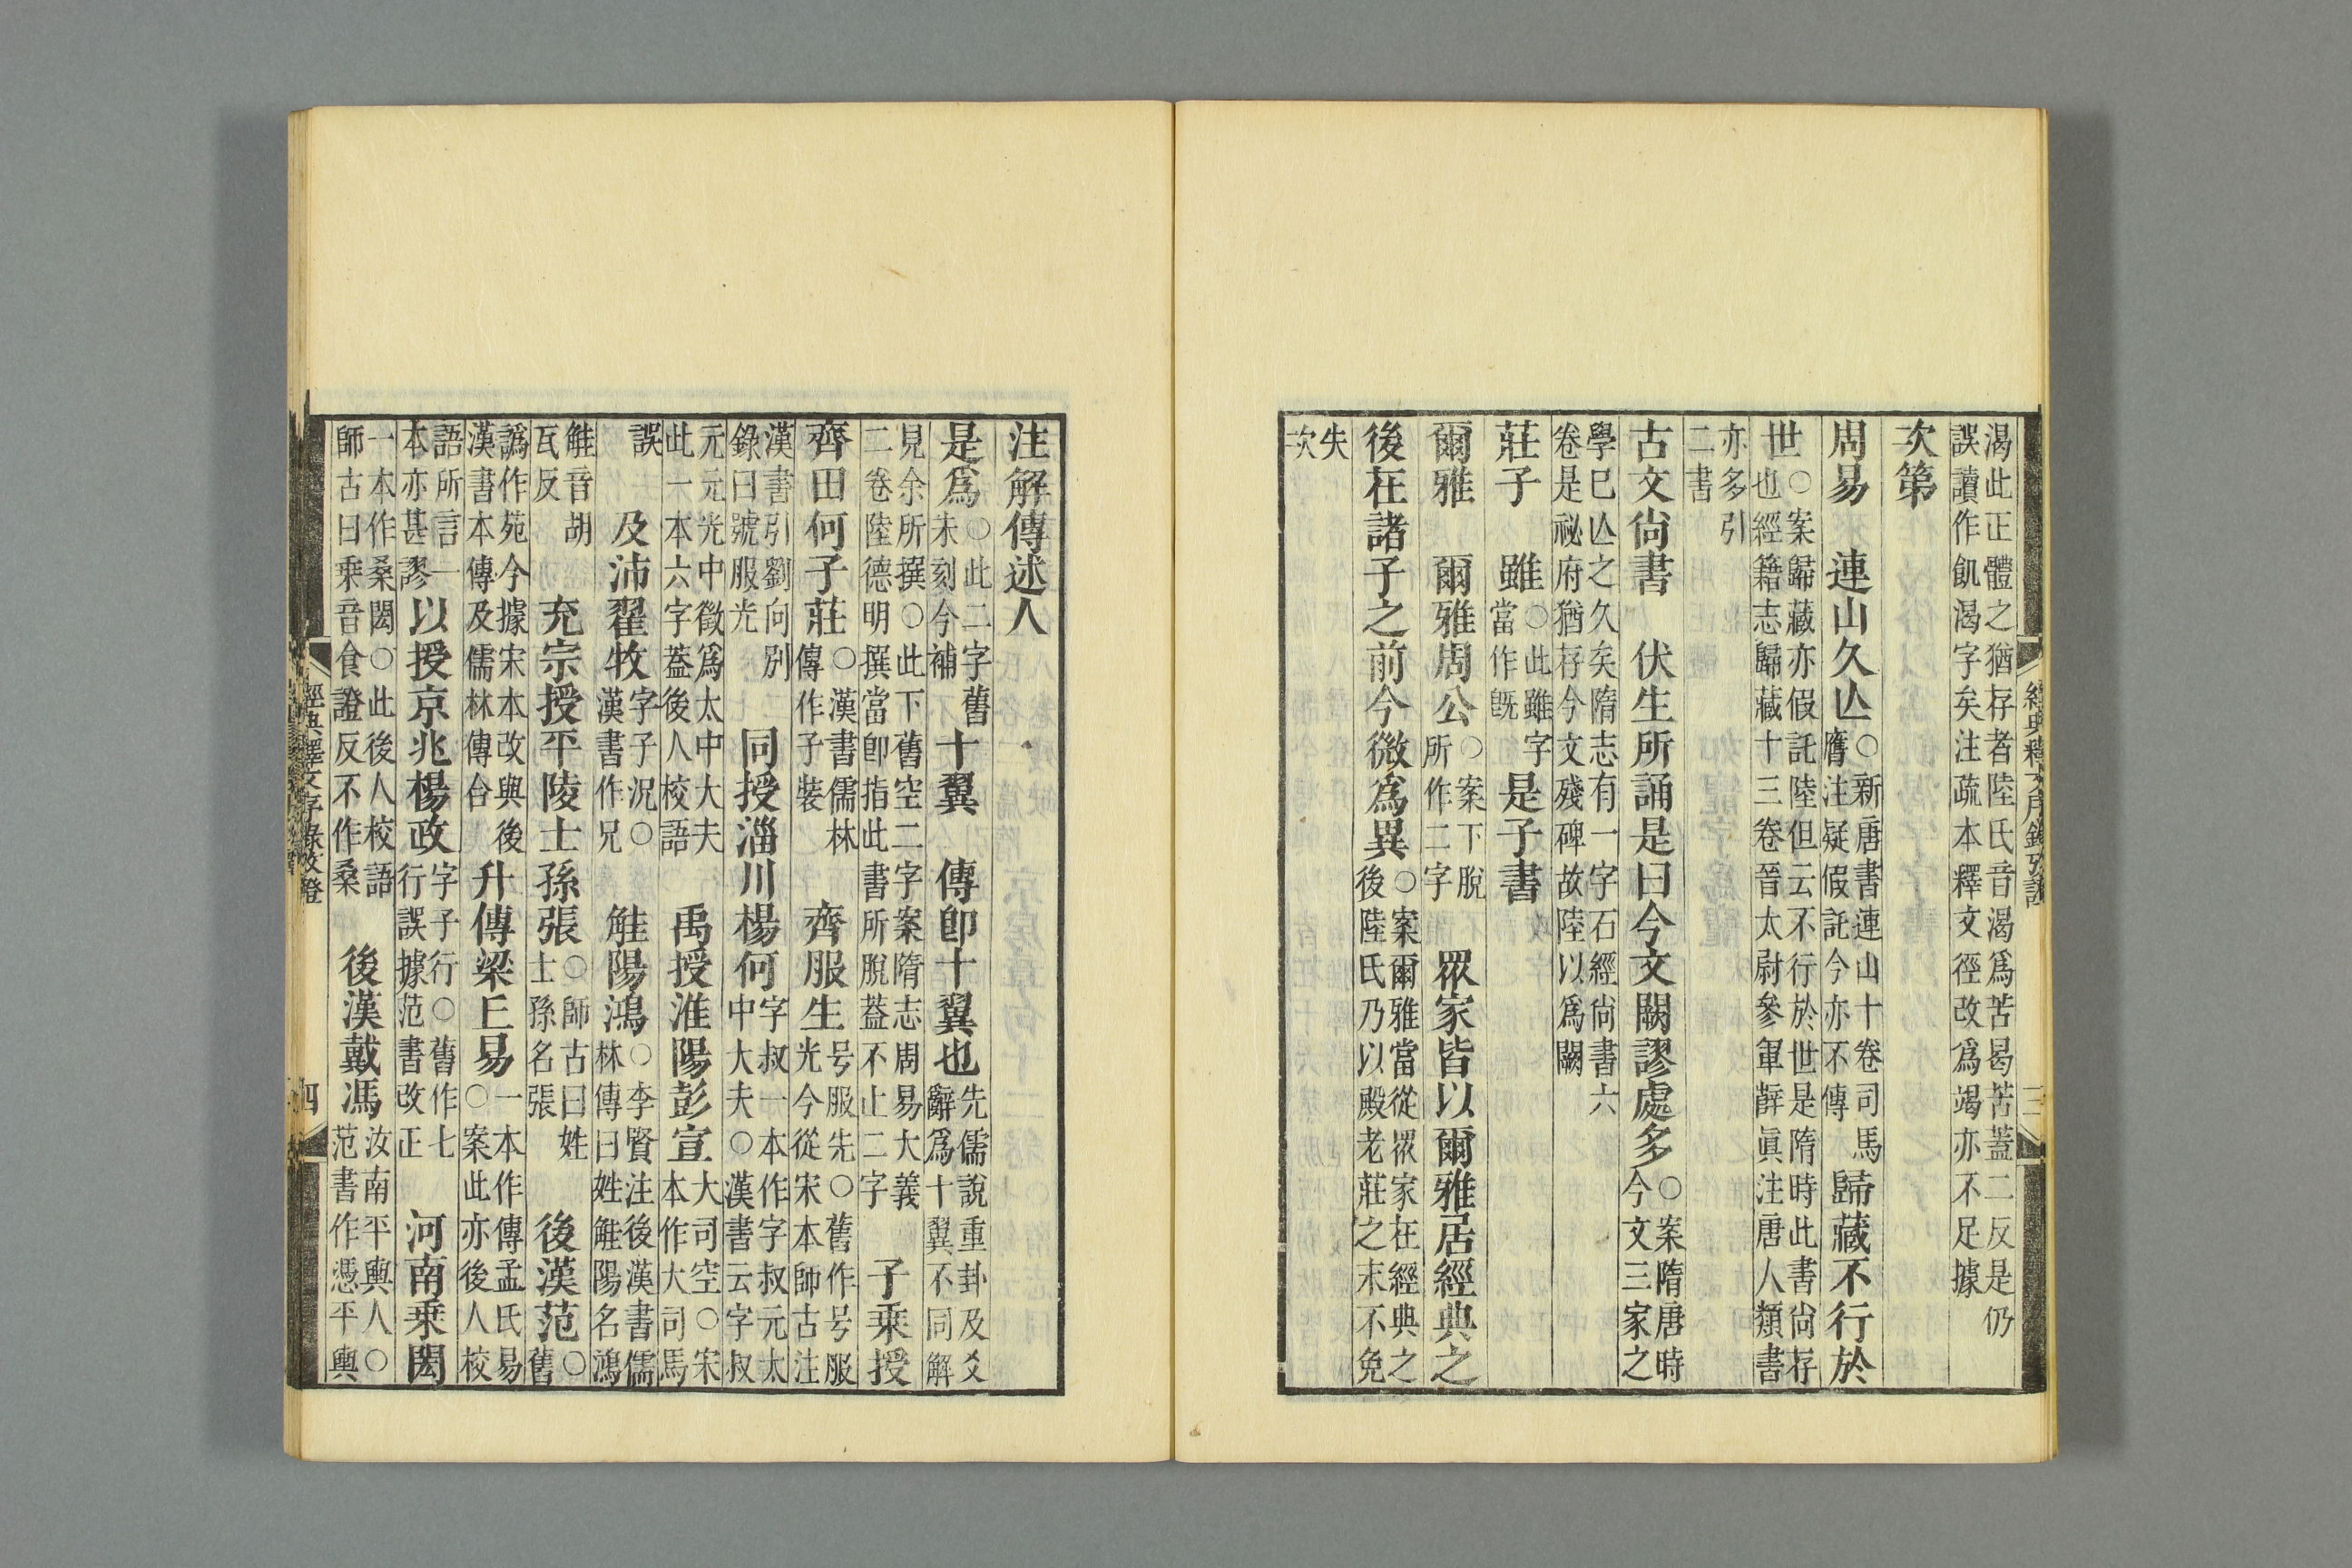 渴此正體之猶存者陸氏音渴爲苦曷苦蓋二反是仍
誤讀作飢渴字矣注疏本釋文徑改爲竭亦不足據
次第
周易　連山久亾○新唐書連山十卷司馬膺注疑假託今亦不傳　歸藏不行於
世○案歸藏亦假託陸但云不行於世是隋時此書尙存也經籍志歸藏十三卷晉太尉參軍薛眞注唐人類書
亦多引二書
古文尙書　伏生所誦是曰今文闕謬處多○案隋唐時今文三家之
學已亾之久矣隋志有一字石經尙書六卷是祕府猶存今文殘碑故陸以爲闕
莊子　雖○此雖字當作旣是子書
爾雅　爾雅周公○案下脫所作二字　眾家皆以爾雅居經典之
後在諸子之前今微爲異○案爾雅當從眾家在經典之後陸氏乃以殿老莊之末不免
失次
經典釋文序錄攷證　三
注解傳述人
是爲○此二字舊未刻今補　十翼　傳卽十翼也先儒說重卦及爻辭爲十翼不同解
見余所撰○此下舊空二字案隋志周易大義二卷陸德明撰當卽指此書所脫葢不止二字　子乘授
齊田何子莊○漢書儒林傳作子裝　齊服生号服先○舊作号服光今從宋本師古注
漢書引劉向別錄曰號服光　同授淄川楊何字叔一本作字叔元太中大夫○漢書云字叔
元元光中徵爲太中大夫此一本六字葢後人校語　禹授淮陽彭宣大司空○宋本作大司馬
誤　及沛翟牧字子況○漢書作兄　觟陽鴻○李賢注後漢書儒林傳曰姓觟陽名鴻
觟音胡瓦反　充宗授平陵士孫張○師古曰姓士孫名張　後漢范○舊
譌作苑今據宋本改與後漢書本傳及儒林傳合　升傳梁丘易一本作傳孟氏易○案此亦後人校
語所言一本亦甚謬　以授京兆楊政字子行○舊作七行誤據范書改正　河南乘閎
一本作桑閎○此後人校語師古曰乘音食證反不作桑　後漢戴馮汝南平輿人○范書作憑平輿
經典釋文序錄攷證　四